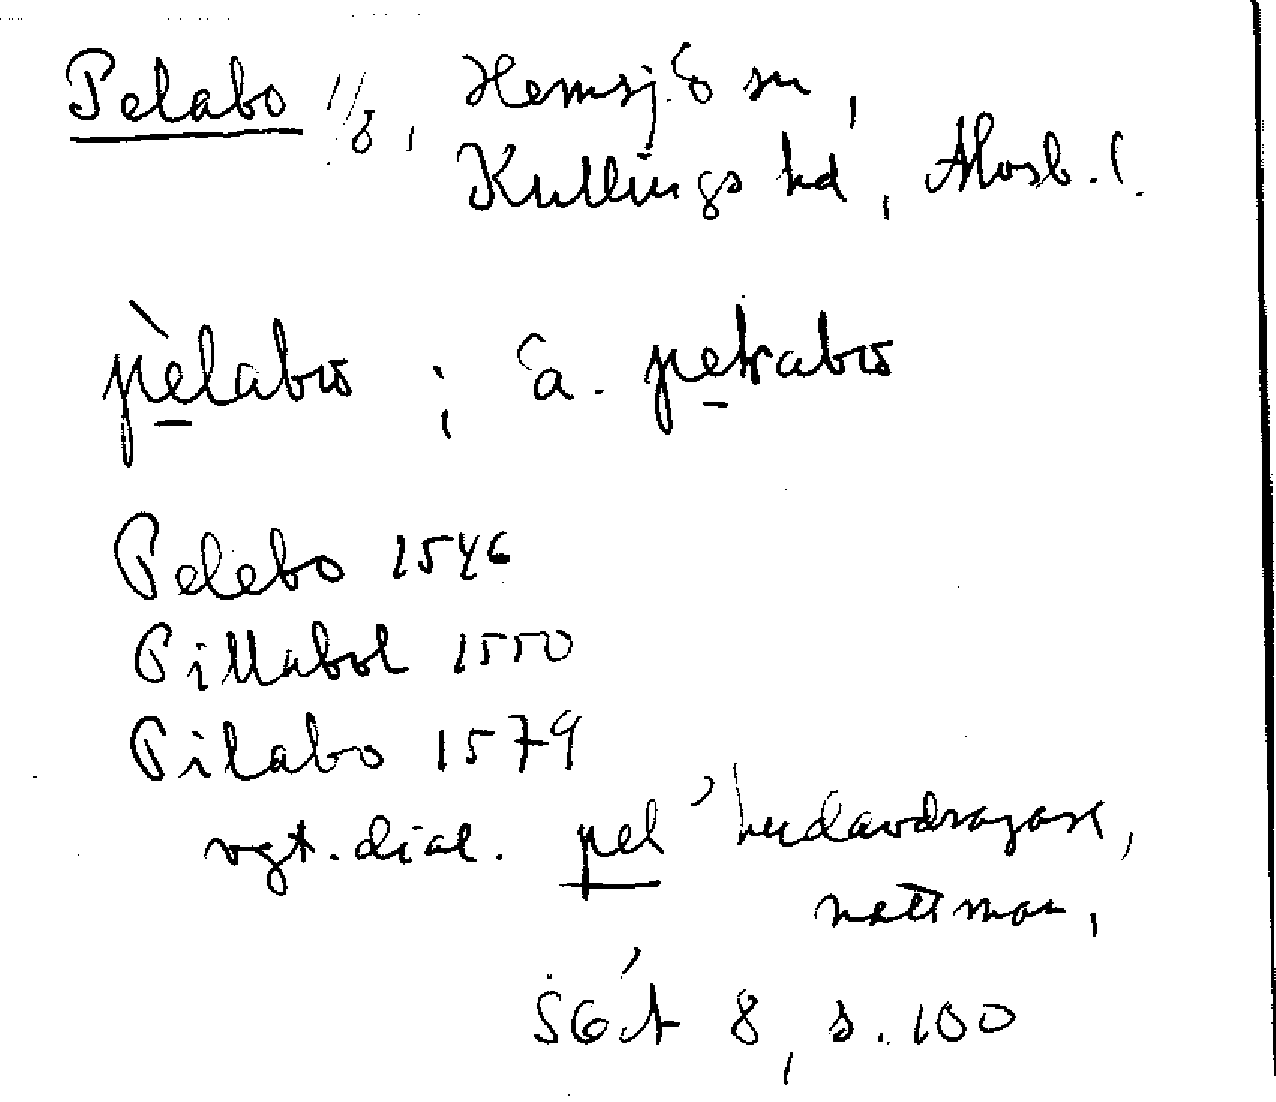 Pelabo 1/8, Hemsjö sn,
Kullings hd, Älvsb. l.
pèlabω ; ä. petrabω
Pelebo 1546
Pillabol 1550
Pilabo 1579
vgt. dial. pel 'hudavdragare,
nattman,'
SGÄ 8, s. 100